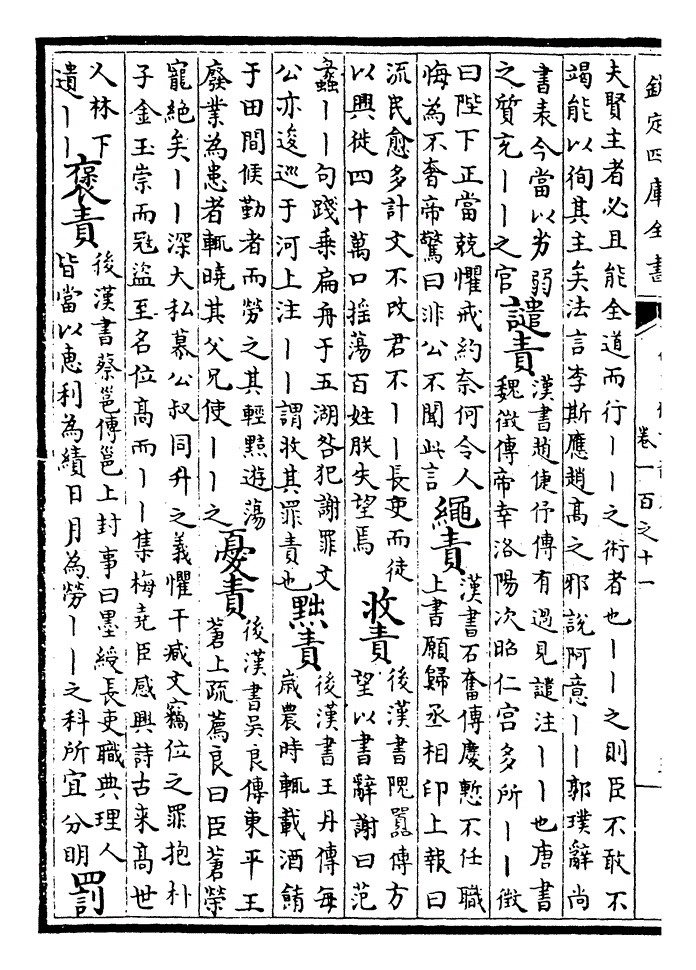 欽定四庫全書
卷一百之十一
夫賢主者必且能全道而行丨丨之術者也丨丨之則臣不敢不
竭能以徇其主矣法言李斯應趙髙之邪說阿意丨丨郭璞辭尚
書表今當以劣弱
之質充丨丨之官
譴責
漢書趙倢伃傳有過見譴注丨丨也唐書
魏徵傳帝幸洛陽次昭仁宫多所丨丨徵
曰陛下正當兢懼戒約奈何令人
悔為不奢帝驚曰非公不聞此言
繩責
漢書石奮傳慶慙不任職
上書願歸丞相印上報曰
流民愈多計文不改君不丨丨長吏而徒
以興徙四十萬口揺蕩百姓朕失望焉
收責
後漢書隗囂傳方
望以書辭謝曰范
蠡丨丨句踐乗扁舟于五湖咎犯謝罪文
公亦逡巡于河上注丨丨謂收其罪責也
黜責
後漢書王丹傳每
歳農時輒載酒餚
于田間候勤者而勞之其輕黠遊蕩
廢業為患者輒曉其父兄使丨丨之
憂責
後漢書吳良傳東平王
蒼上疏薦良曰臣蒼榮
寵絶矣丨丨深大私慕公叔同升之義懼干臧文竊位之罪抱朴
子金玉崇而冦盜至名位髙而丨丨集梅堯臣感興詩古来髙世
人林下
遺丨丨
褒責
後漢書蔡邕傳邕上封事曰墨綬長吏職典理人
皆當以惠利為績日月為勞丨丨之科所宜分明
罰